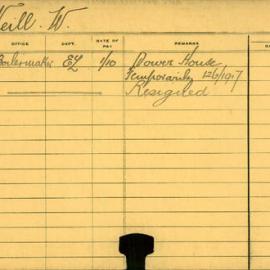 Neill. W.
OFFICE DEPT. RATE OF PAY REMARKS
Boilermaker EL 1/10 Power House
Temporarily 12/6/1917
Resigned